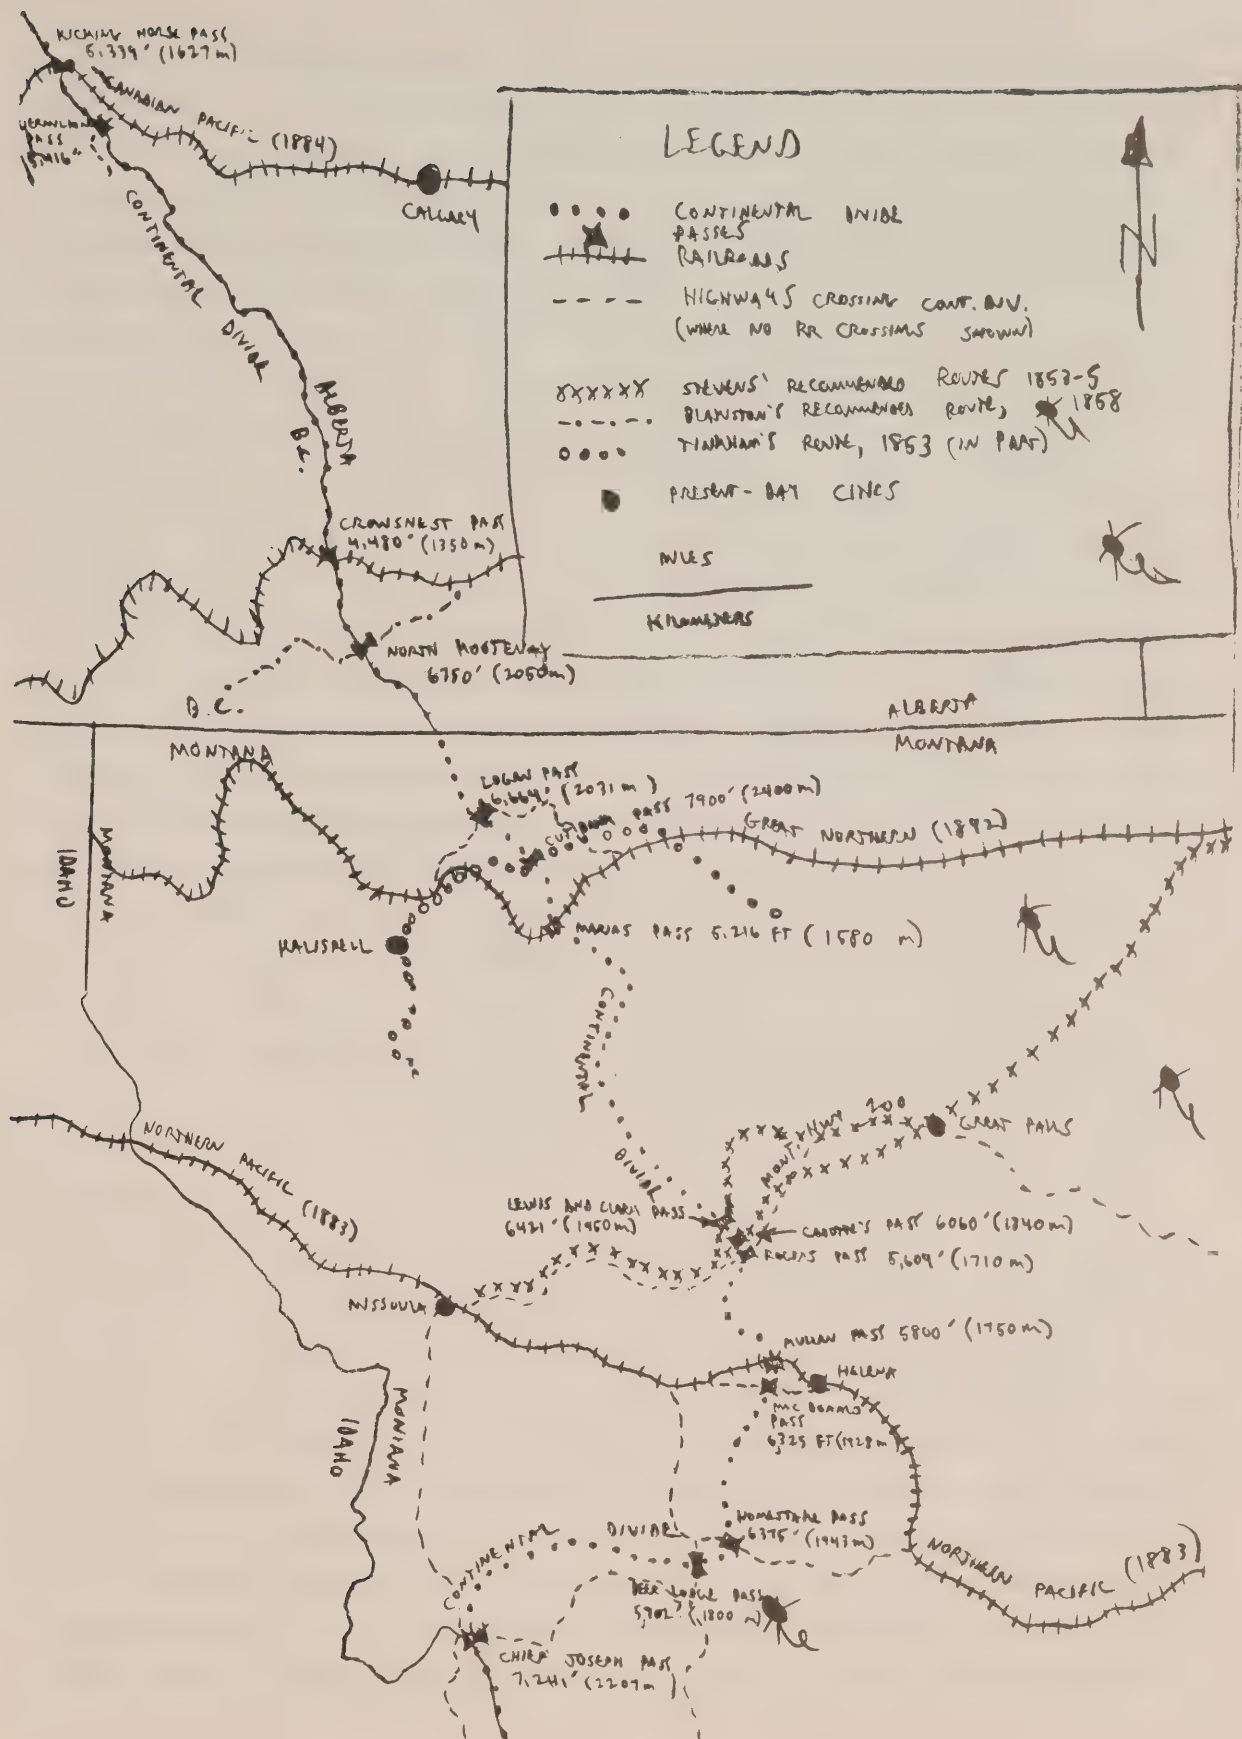 KICKING HORSE PASS
5,339' (1627 m)
CANADIAN PACIFIC (1884)
VERMILION
PASS
5,416'
CALGARY
CONTINENTAL DIVIDE
ALBERTA
B.C.
LEGEND
CONTINENTAL DIVIDE
PASSES
RAILROADS
N
HIGHWAYS CROSSING CONT. DIV.
(WHERE NO RR CROSSING SHOWN)
XXXXXX STEVENS' RECOMMENDED ROUTES 1853-5
BLAKISTON'S RECOMMENDED ROUTE, 1858
TINKHAM'S ROUTE, 1853 (IN PART)
PRESENT-DAY CITIES
MILES
KILOMETERS
CROWSNEST PASS
4,480' (1350 m)
NORTH KOOTENAY
6750' (2050m)
B.C.
ALBERTA
MONTANA
MONTANA
MONTANA
IDAHO
LOGAN PASS
6,664' (2031 m)
CUTBANK PASS 7900' (2400m)
GREAT NORTHERN (1892)
KALISPELL
MARIAS PASS 5,216 FT (1580 m)
CONTINENTAL
DIVIDE
MONT. HWY 200
GREAT FALLS
NORTHERN PACIFIC (1883)
LEWIS AND CLARK PASS
6421' (1950m)
CADOTTE'S PASS 6060' (1840m)
ROGERS PASS 5,609' (1710m)
MISSOULA
MULLAN PASS 5800' (1750m)
HELENA
MC DONALD
PASS
6,325 FT (1928 m
MONTANA
IDAHO
HOMESTAKE PASS
6375' (1943m)
CONTINENTAL DIVIDE
DEER LODGE PASS
5,902' (1800 m)
NORTHERN PACIFIC (1883)
CHIEF JOSEPH PASS
7,241' (2207m)